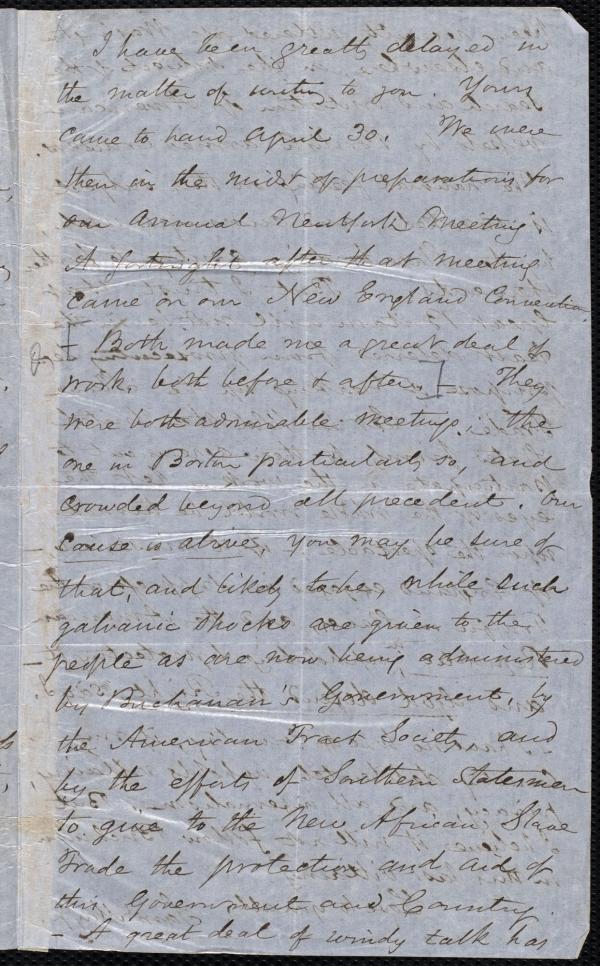 I have been greatly delayed in
the matter of writing to you. Yours
came to hand April 30. We were
then in the midst of preparations for
our Annual New York Meeting
A fortnight after that meeting
came on our New England Convention.
[Both made me a great deal of
work, both before & after.] They
were both admirable meetings; the
one in Boston particularly so, and
crowded beyond all precedent. Our
cause is alive, you may be sure of
that, and likely to be, while such
galvanic shocks are given to the
people as are now being administered
by Buchanan's Government, by
the American Tract Society and
by the efforts of Southern Statesmen
to give to the New African Slave
Trade the protection and aid of
this Government and Country.
- A great deal of windy talk has